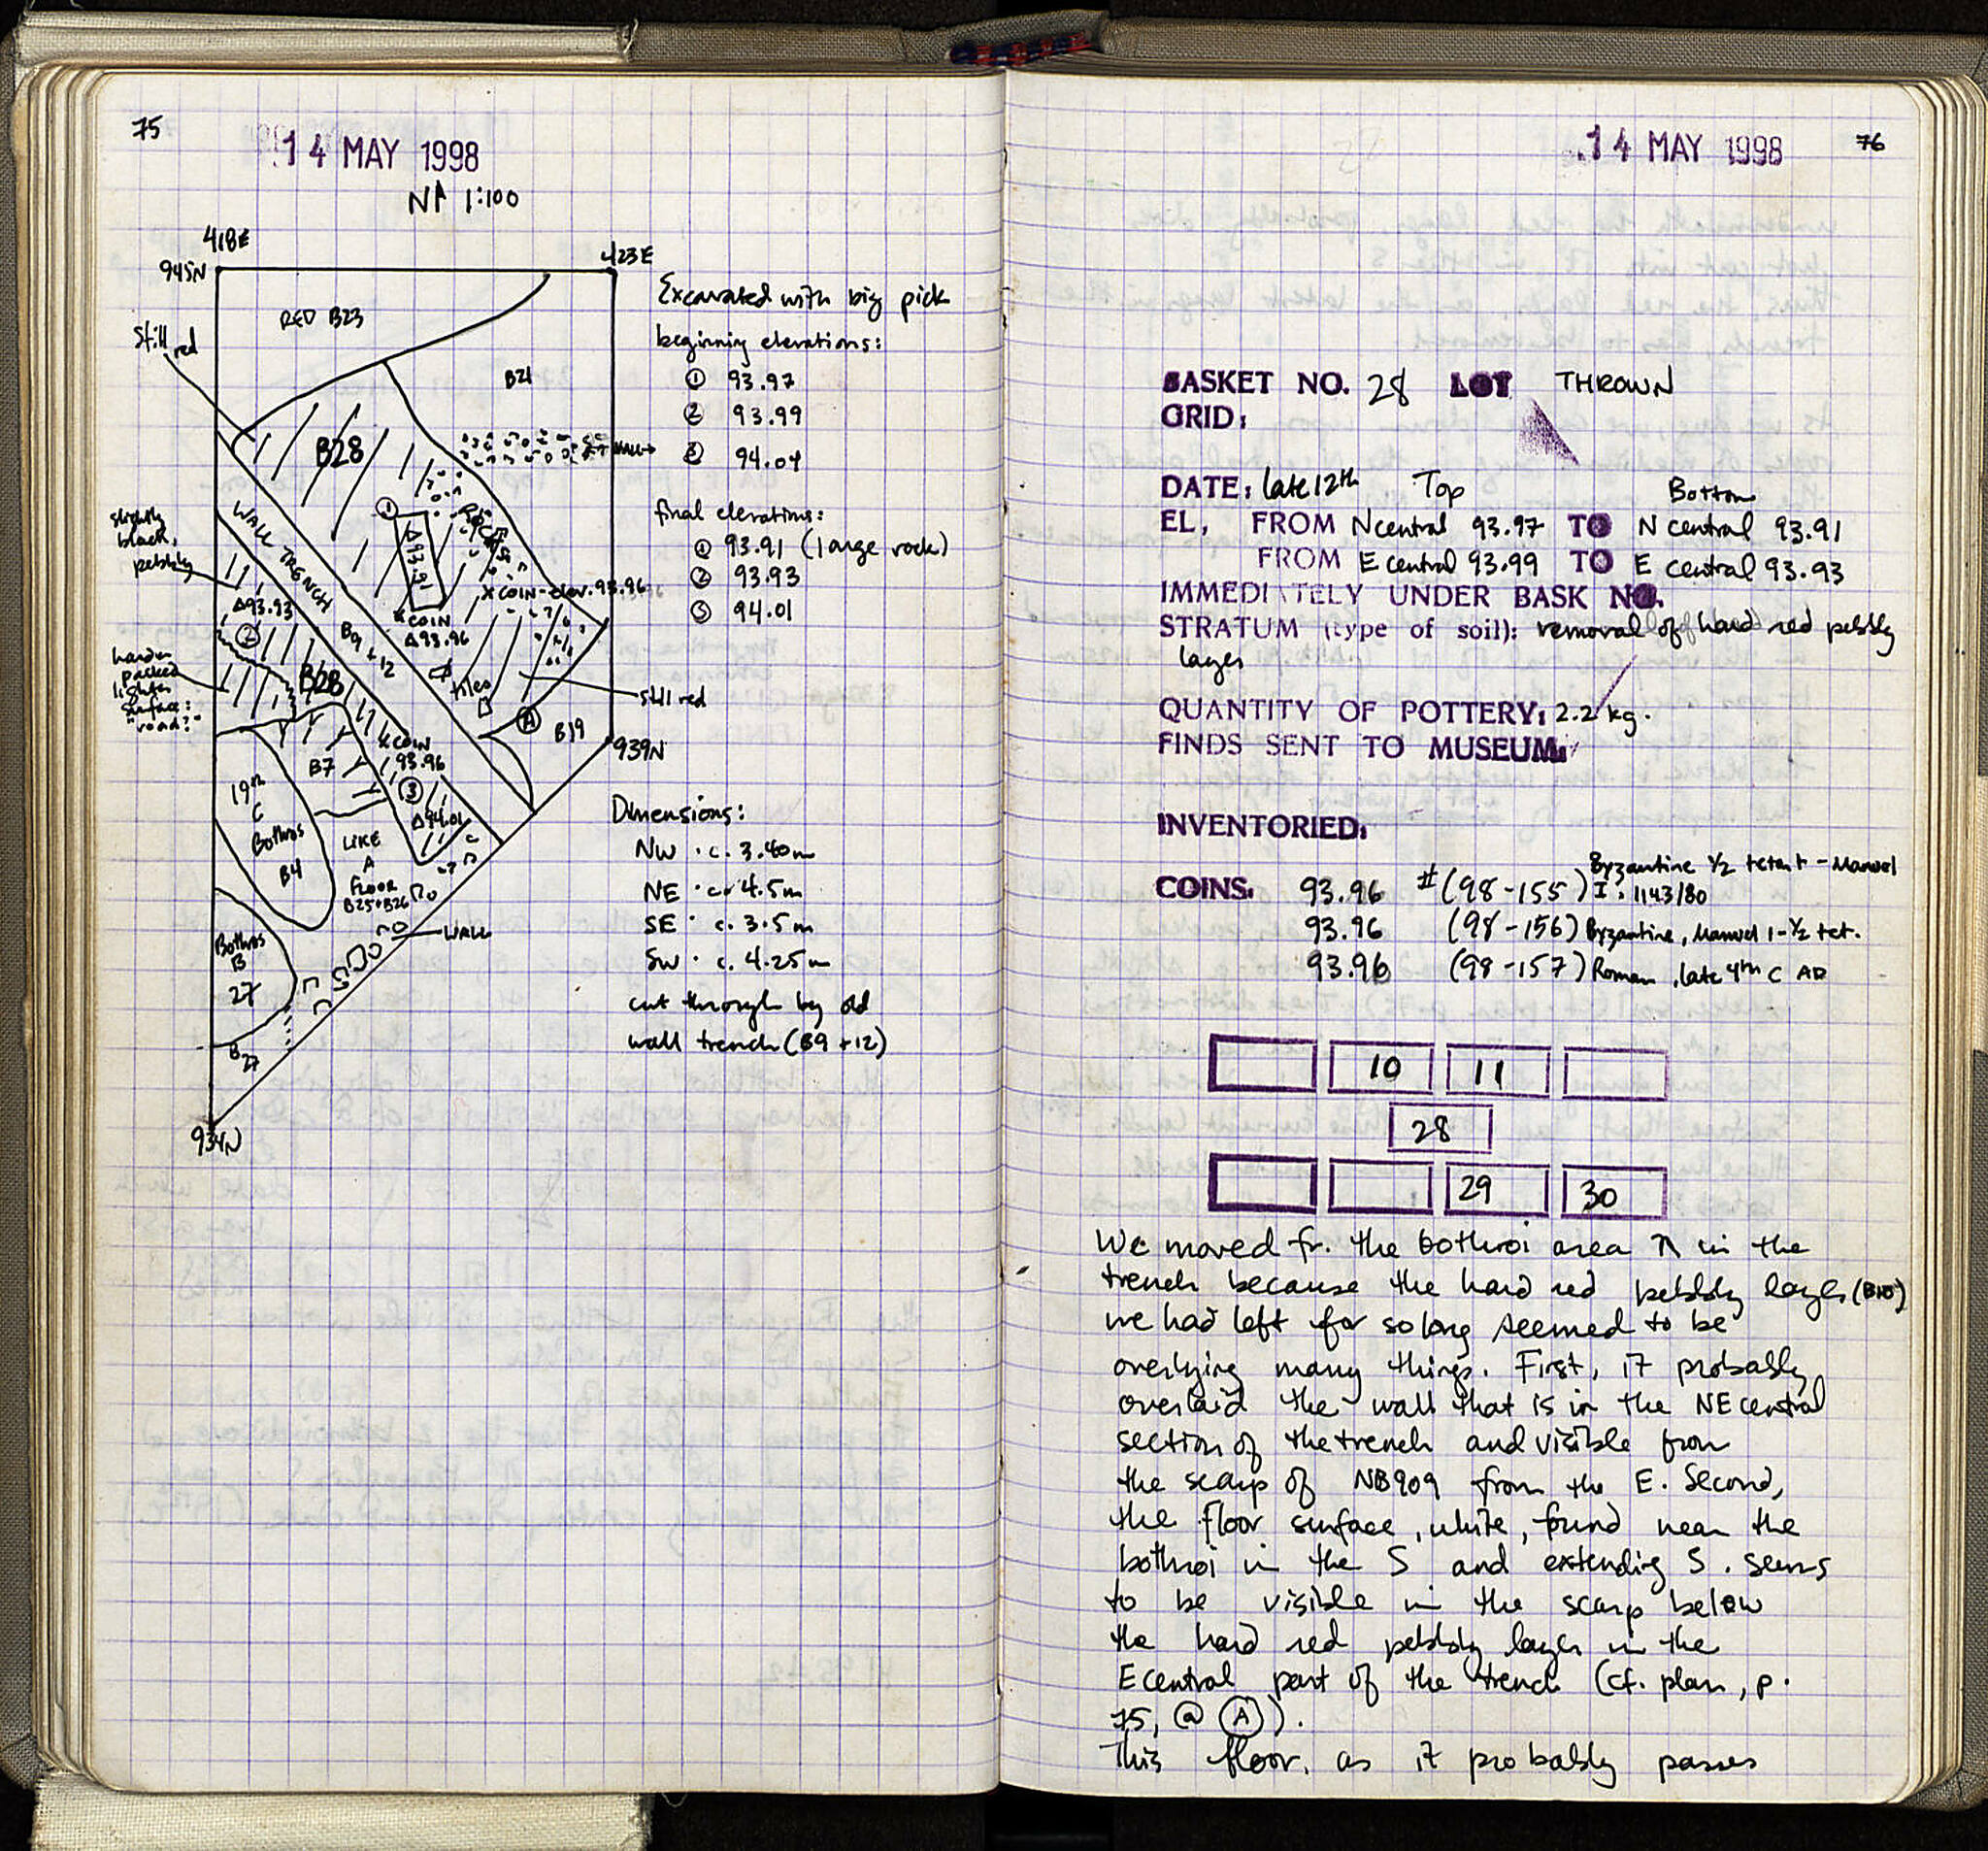 75
14 MAY 1998
N 1:100
418E
423E
945N
RED B23
Still red
B21
B28
WALL→
①
ROCKS
Δ93.91
WALL TRENCH
slightly
black,
pebbly
X COIN-elev. 93.96
X COIN
Δ93.96
Δ93.93
②
B9 + 12
harder
packed
lighter
surface:
"road?"
B28
tiles
still red
Ⓐ
B19
939N
X COIN
93.96
B7
③
Δ94.01
19th
C
Bothros
B4
LIKE
A
FLOOR
B25+B26
WALL
Bothros
B
27
B27
934N
Excavated with big pick
beginning elevations:
① 93.97
② 93.99
③ 94.04
final elevations:
① 93.91 (large rock)
② 93.93
③ 94.01
Dimensions:
NW · c. 3.40m
NE · c. 4.5m
SE · c. 3.5m
SW · c. 4.25m
cut through by old
wall trench (B9 + 12)
14 MAY 1998
76
BASKET NO. 28 LOT THROWN
GRID:
DATE: late 12th Top Bottom
EL, FROM N central 93.97 TO N central 93.91
FROM E central 93.99 TO E central 93.93
IMMEDIATELY UNDER BASK NO.
STRATUM (type of soil): removal of hard red pebbly
layer
QUANTITY OF POTTERY: 2.2 kg.
FINDS SENT TO MUSEUM:
INVENTORIED:
COINS: 93.96 #(98-155) Byzantine 1/2 tetart - Manuel
I, 1143/80
93.96 (98-156) Byzantine, Manuel I - 1/2 tet.
93.96 (98-157) Roman, late 4th C AD
10 11
28
29 30
We moved fr. the bothroi area N in the
trench because the hard red pebbly layer (B10)
we had left for so long seemed to be
overlying many things. First, it probably
overlaid the wall that is in the NE central
section of the trench and visible from
the scarp of NB909 from the E. Second,
the floor surface, white, found near the
bothroi in the S and extending S. seems
to be visible in the scarp below
the hard red pebbly layer in the
E central part of the trench (cf. plan, p.
75, @ Ⓐ).
This floor, as it probably passes